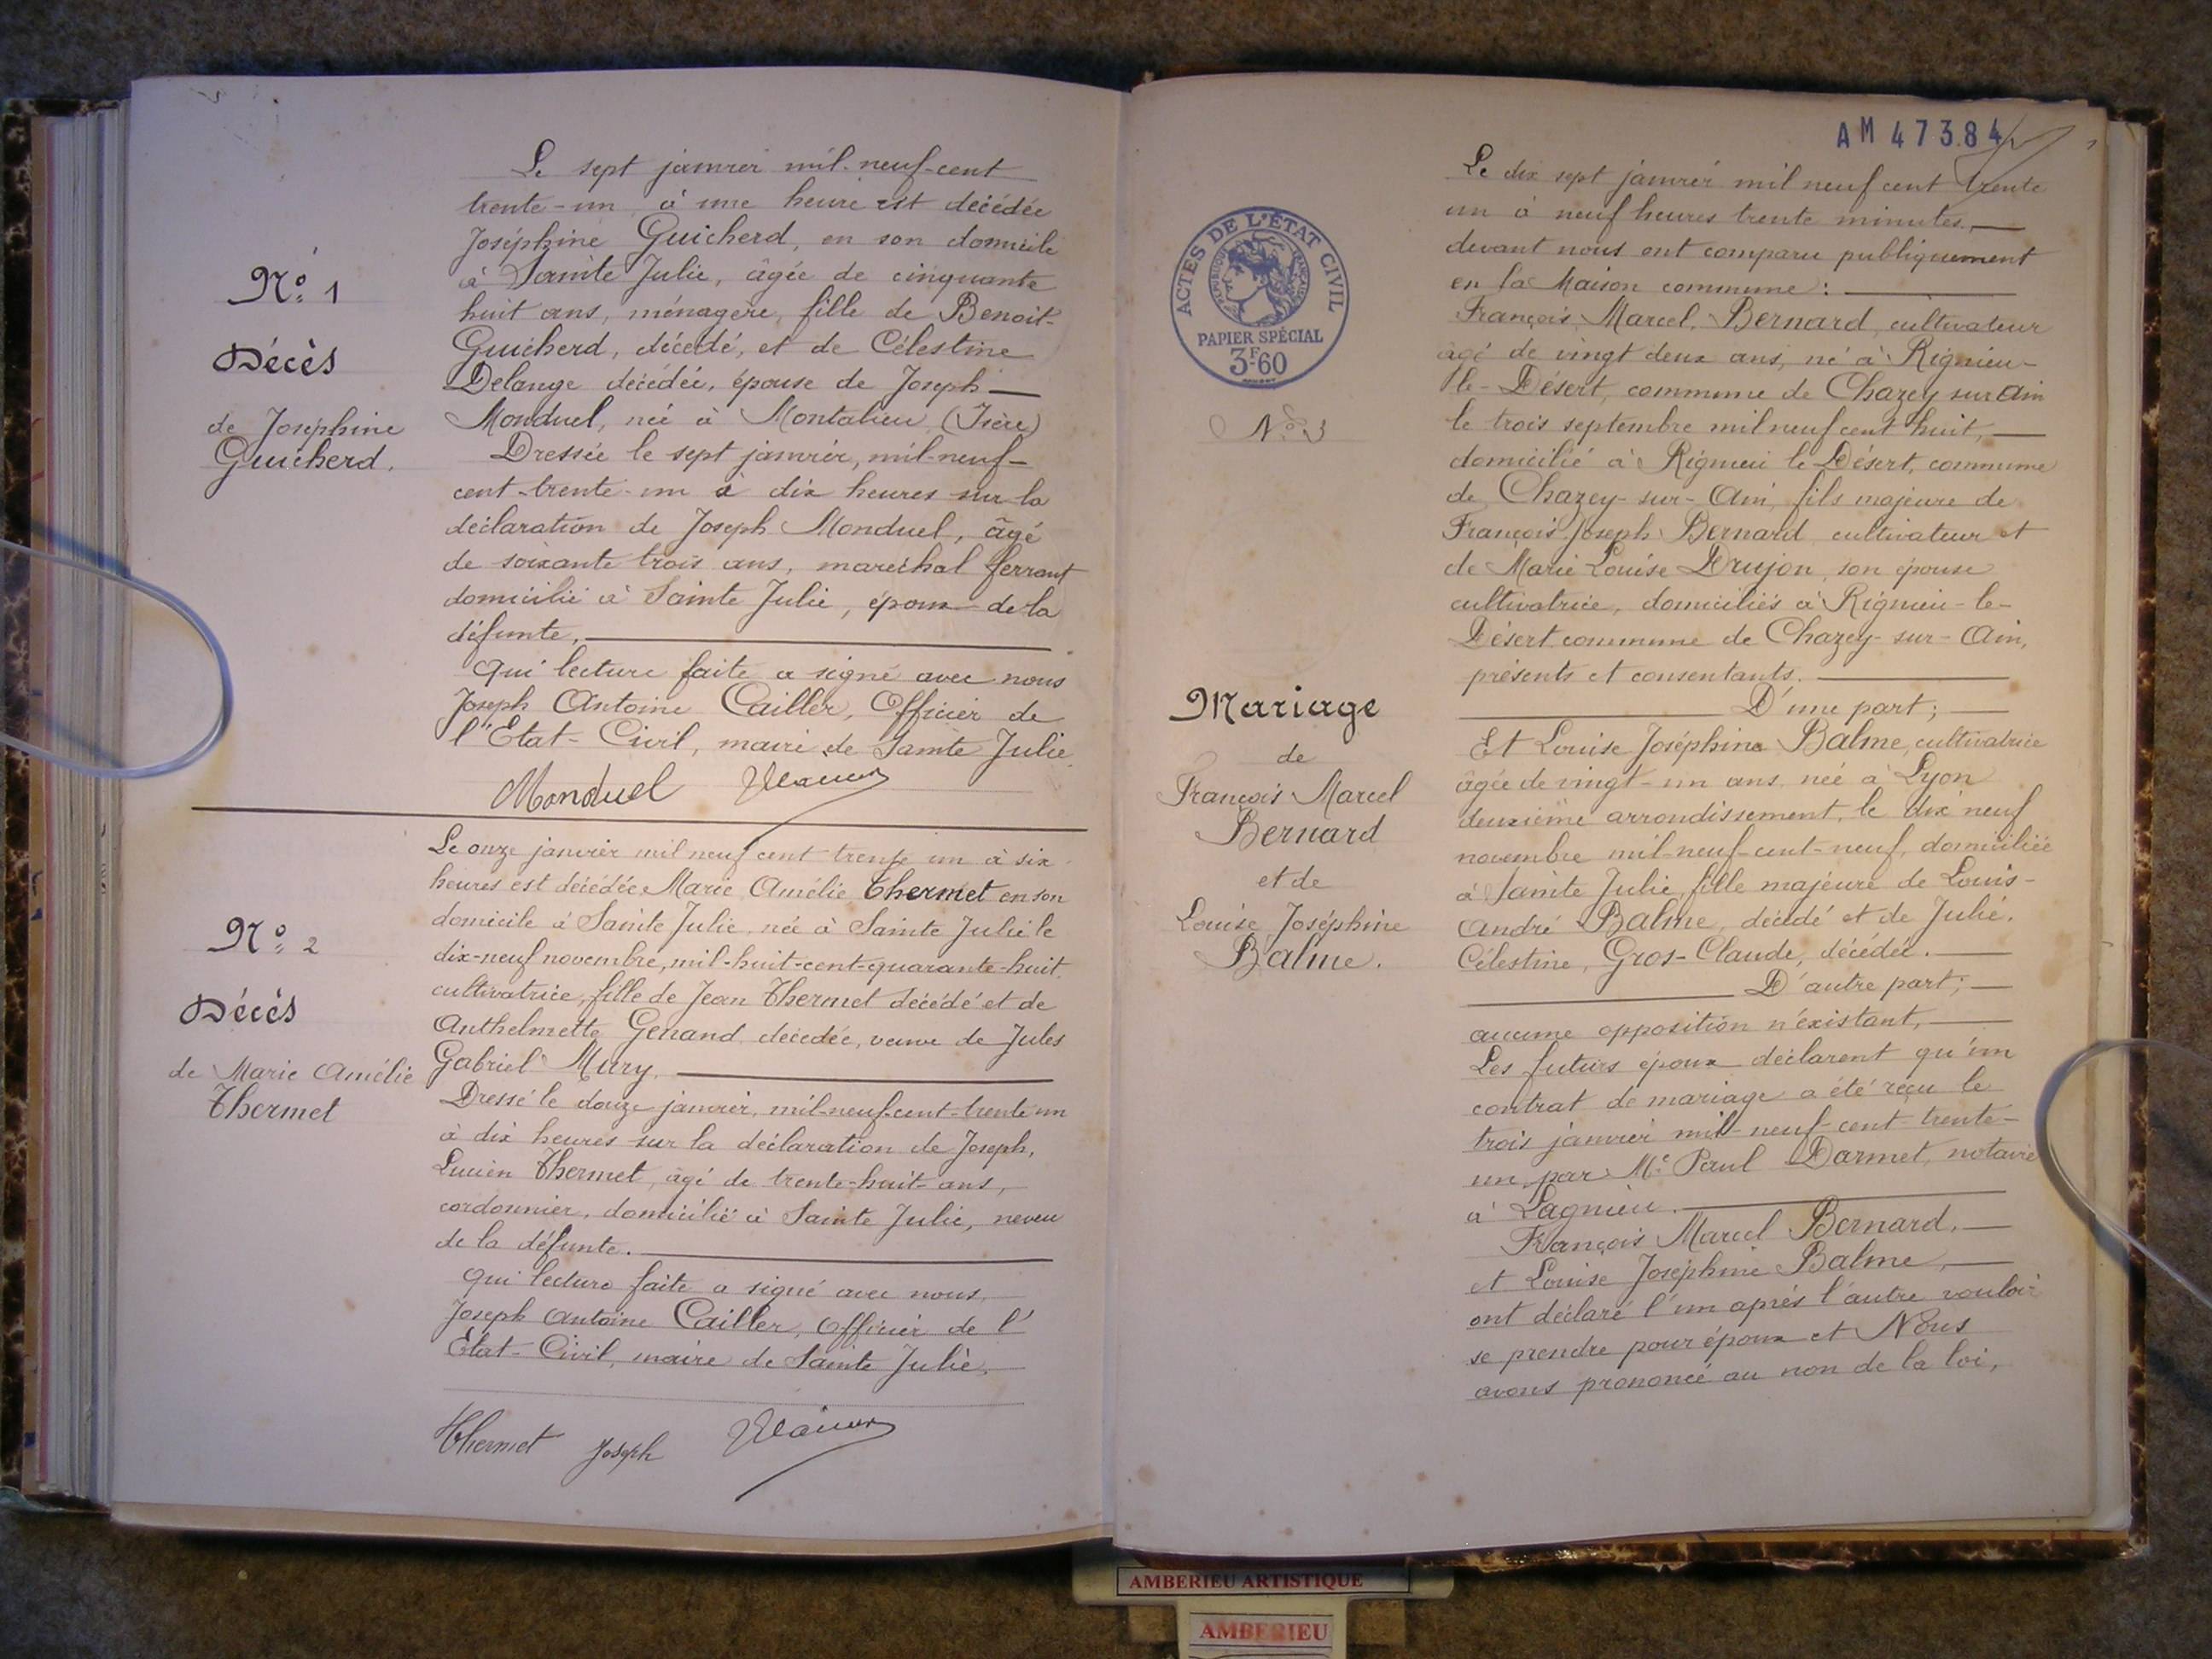 N° 1
Décès
de Joséphine
Guicherd.
Le sept janvier mil-neuf-cent
trente-un à une heure est décédée
Joséphine Guicherd, en son domicile
à Sainte Julie, âgée de cinquante
huit ans, ménagère, fille de Benoit-
Guicherd, décédé, et de Célestine
Delange décédée, épouse de Joseph
Monduel, née à Montalieu (Isère)
Dressée le sept janvier, mil-neuf-
cent-trente-un à dix heures sur la
déclaration de Joseph Monduel, âgé
de soixante trois ans, maréchal ferrant
domicilié à Sainte Julie, époux de la
défunte.
qui lecture faite a signé avec nous
Joseph Antoine Cailler, Officier de
l'Etat-Civil, maire de Sainte Julie.
Monduel
N° 2
Décès
de Marie Amélie
Thermet
Le onze janvier mil neuf cent trente un à six
heures est décédée Marie Amélie Thermet en son
domicile à Sainte Julie, née à Sainte Julie le
dix-neuf novembre, mil-huit-cent-quarante-huit,
cultivatrice, fille de Jean Thermet décédé et de
Anthelmette Genand décédée, veuve de Jules
Gabriel Mury.
Dressé le douze janvier, mil-neuf-cent-trente un
à dix heures sur la déclaration de Joseph,
Lucien Thermet, âgé de trente-huit-ans,
cordonnier, domicilié à Sainte Julie, neveu
de la défunte.
qui lecture faite a signé avec nous,
Joseph Antoine Cailler, Officier de l'
Etat-Civil, maire de Sainte Julie.
Thermet Joseph
AM 47384
ACTES DE L'ÉTAT CIVIL
RÉPUBLIQUE FRANÇAISE
PAPIER SPÉCIAL
3F60
N° 3
Mariage
de
François Marcel
Bernard
et de
Louise Joséphine
Balme.
Le dix sept janvier mil neuf cent trente
un à neuf heures trente minutes.
devant nous ont comparu publiquement
en la Maison commune :
François, Marcel, Bernard, cultivateur
âgé de vingt deux ans, né à Rignieu-
le-Désert, commune de Chazey sur Ain
le trois septembre mil neuf cent huit,
domicilié à Rignieu le Désert, commune
de Chazey-sur-Ain, fils majeure de
François Joseph Bernard cultivateur et
de Marie Louise Drujon, son épouse
cultivatrice, domiciliés à Rignieu-le-
Désert commune de Chazey-sur-Ain,
présents et consentants.
D'une part;
Et Louise Joséphine Balme, cultivatrice
âgée de vingt-un ans, née à Lyon
deuxième arrondissement, le dix neuf
novembre mil-neuf-cent-neuf, domiciliée
à Sainte Julie, fille majeure de Louis-
André Balme, décédé et de Julie,
Célestine, Gros-Claude, décédée.
D'autre part;
aucune opposition n'existant,
Les futurs époux déclarent qu'un
contrat de mariage a été reçu le
trois janvier mil-neuf-cent-trente-
un, par Me Paul Darmet, notaire
à Lagnieu.
François Marcel Bernard,
et Louise Joséphine Balme,
ont déclaré l'un après l'autre vouloir
se prendre pour époux et Nous
avons prononcé au non de la loi,
AMBERIEU ARTISTIQUE
AMBERIEU